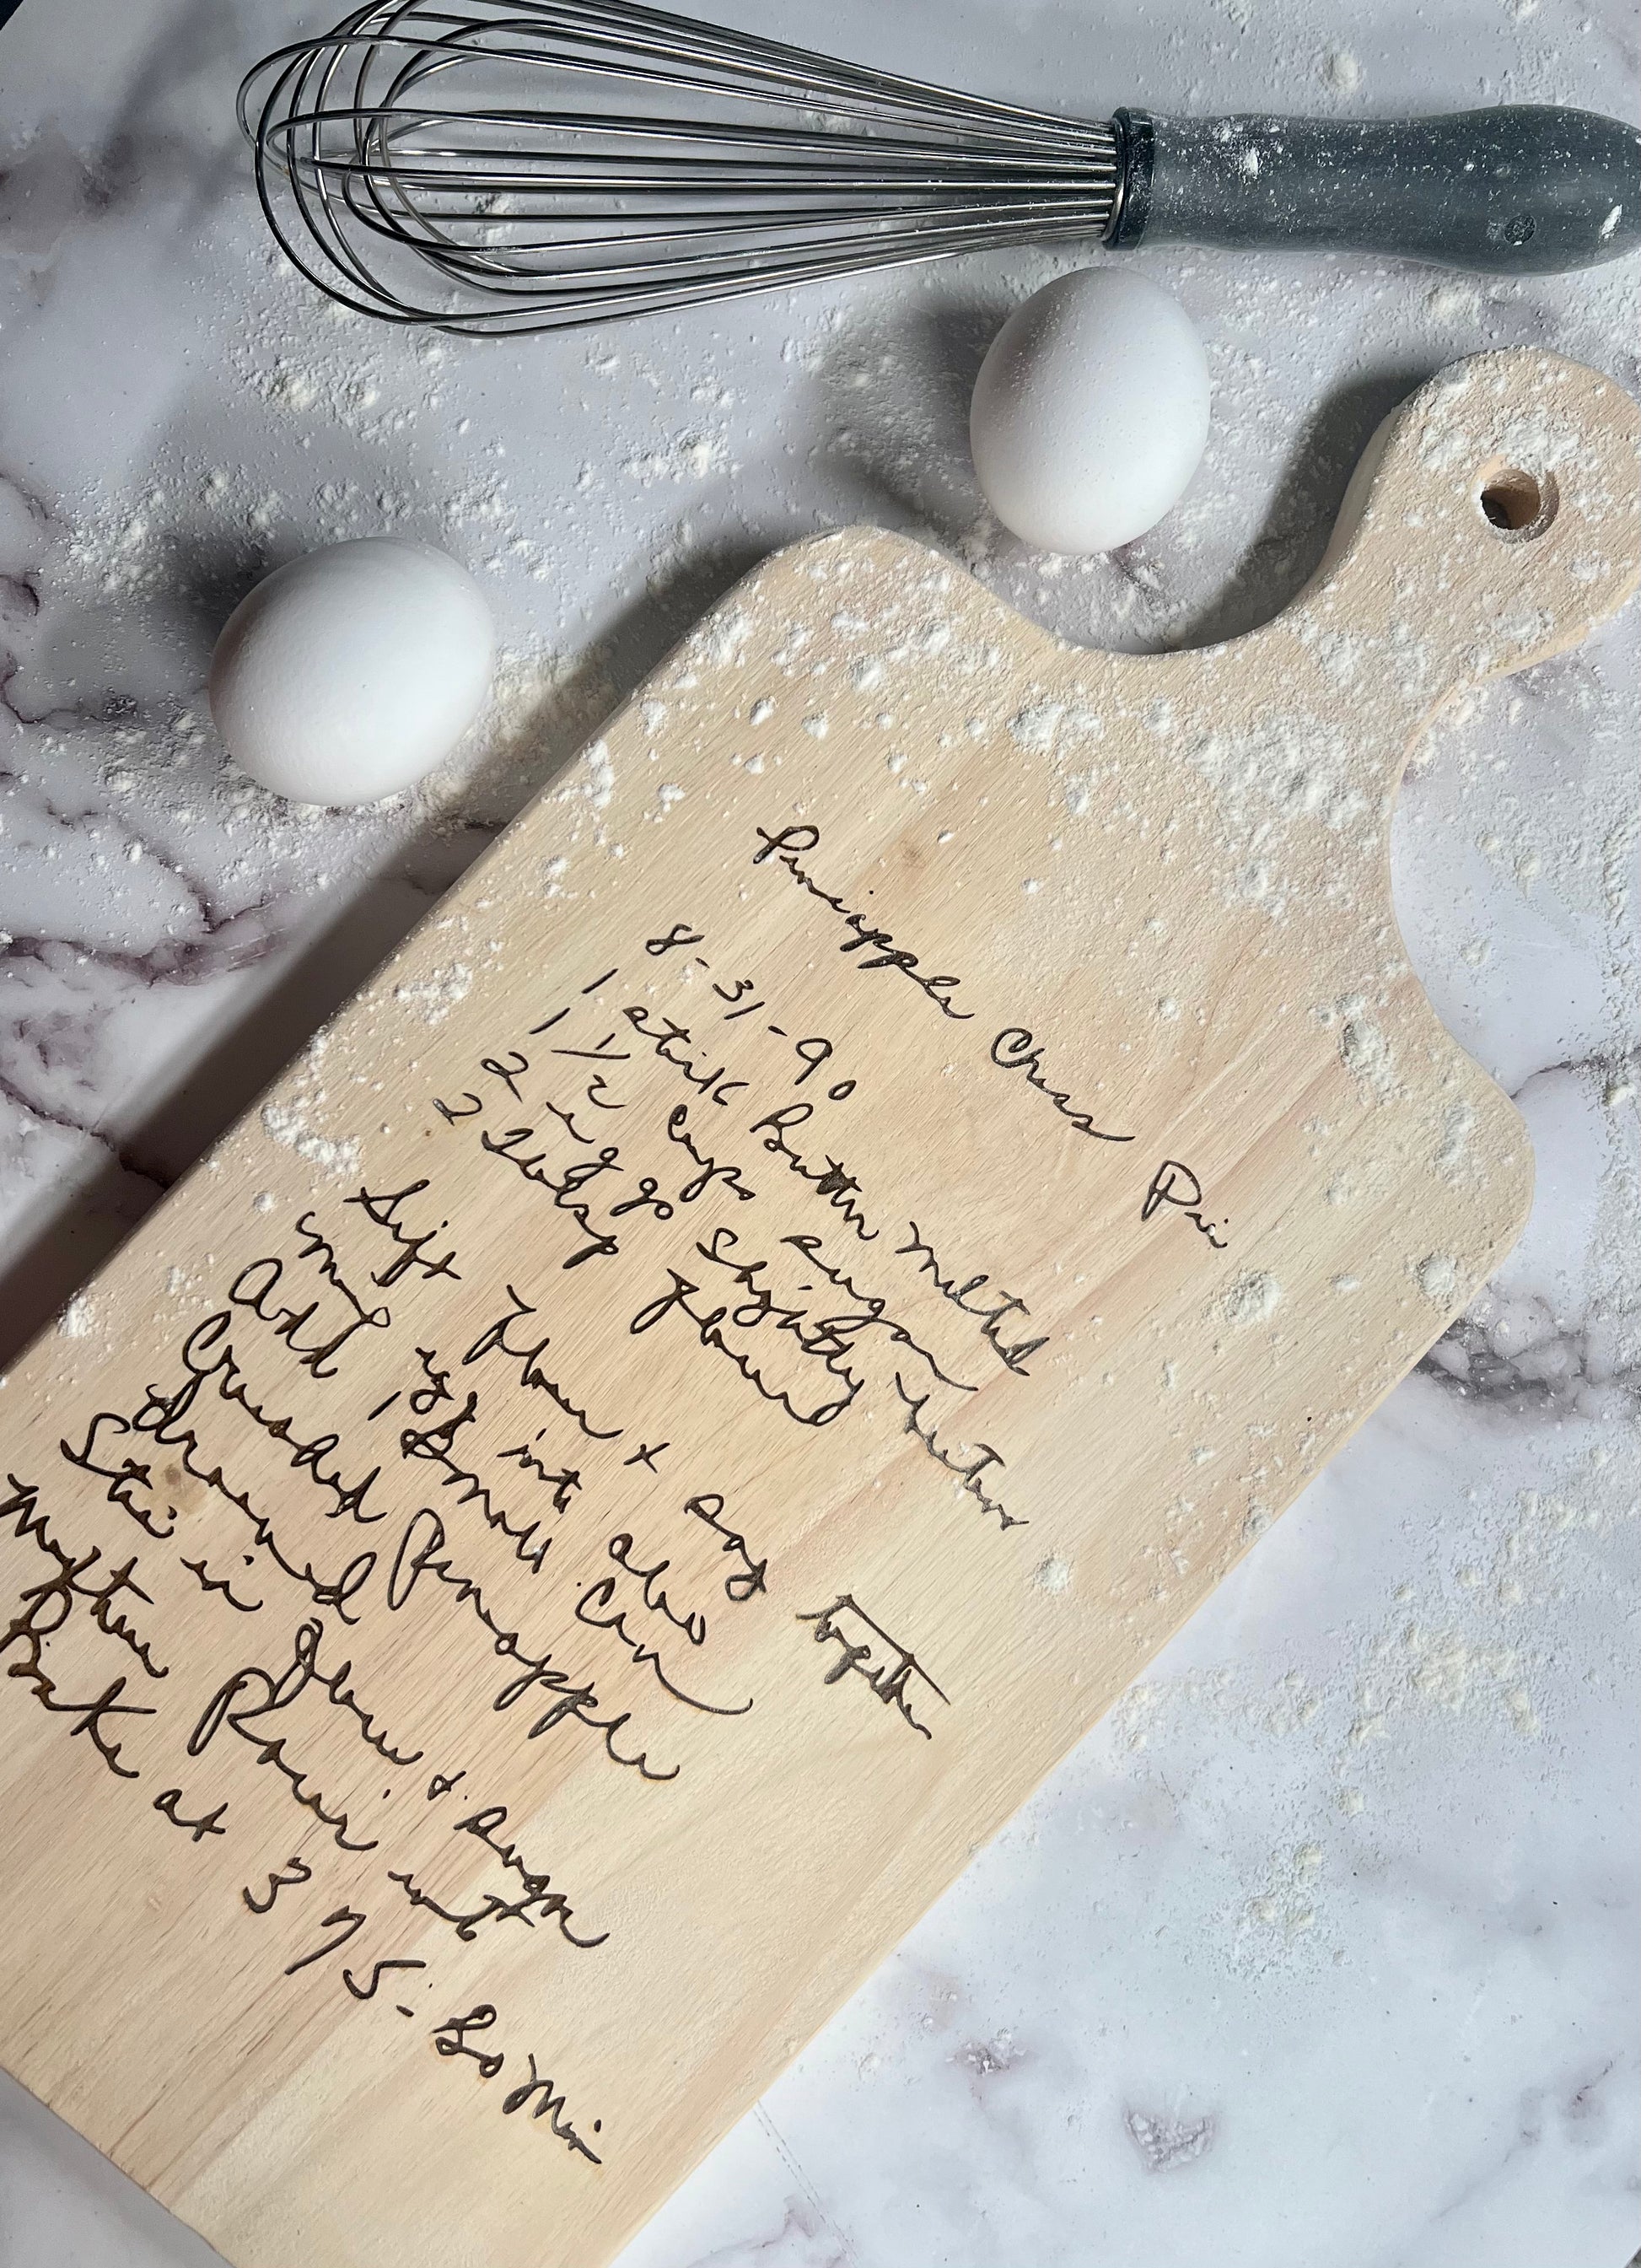 Pineapple Chess Pie
8-31-90
1 stick Butter melted
1 1/2 cups sugar
2 eggs slightly beaten
2 Tblsp flour
Sift flour + sug together
mix egg into also
Add 1 small can
Crushed Pineapple
drained
Stir in flour + sugar
Mixture Pour into
Bake at 375-
Min